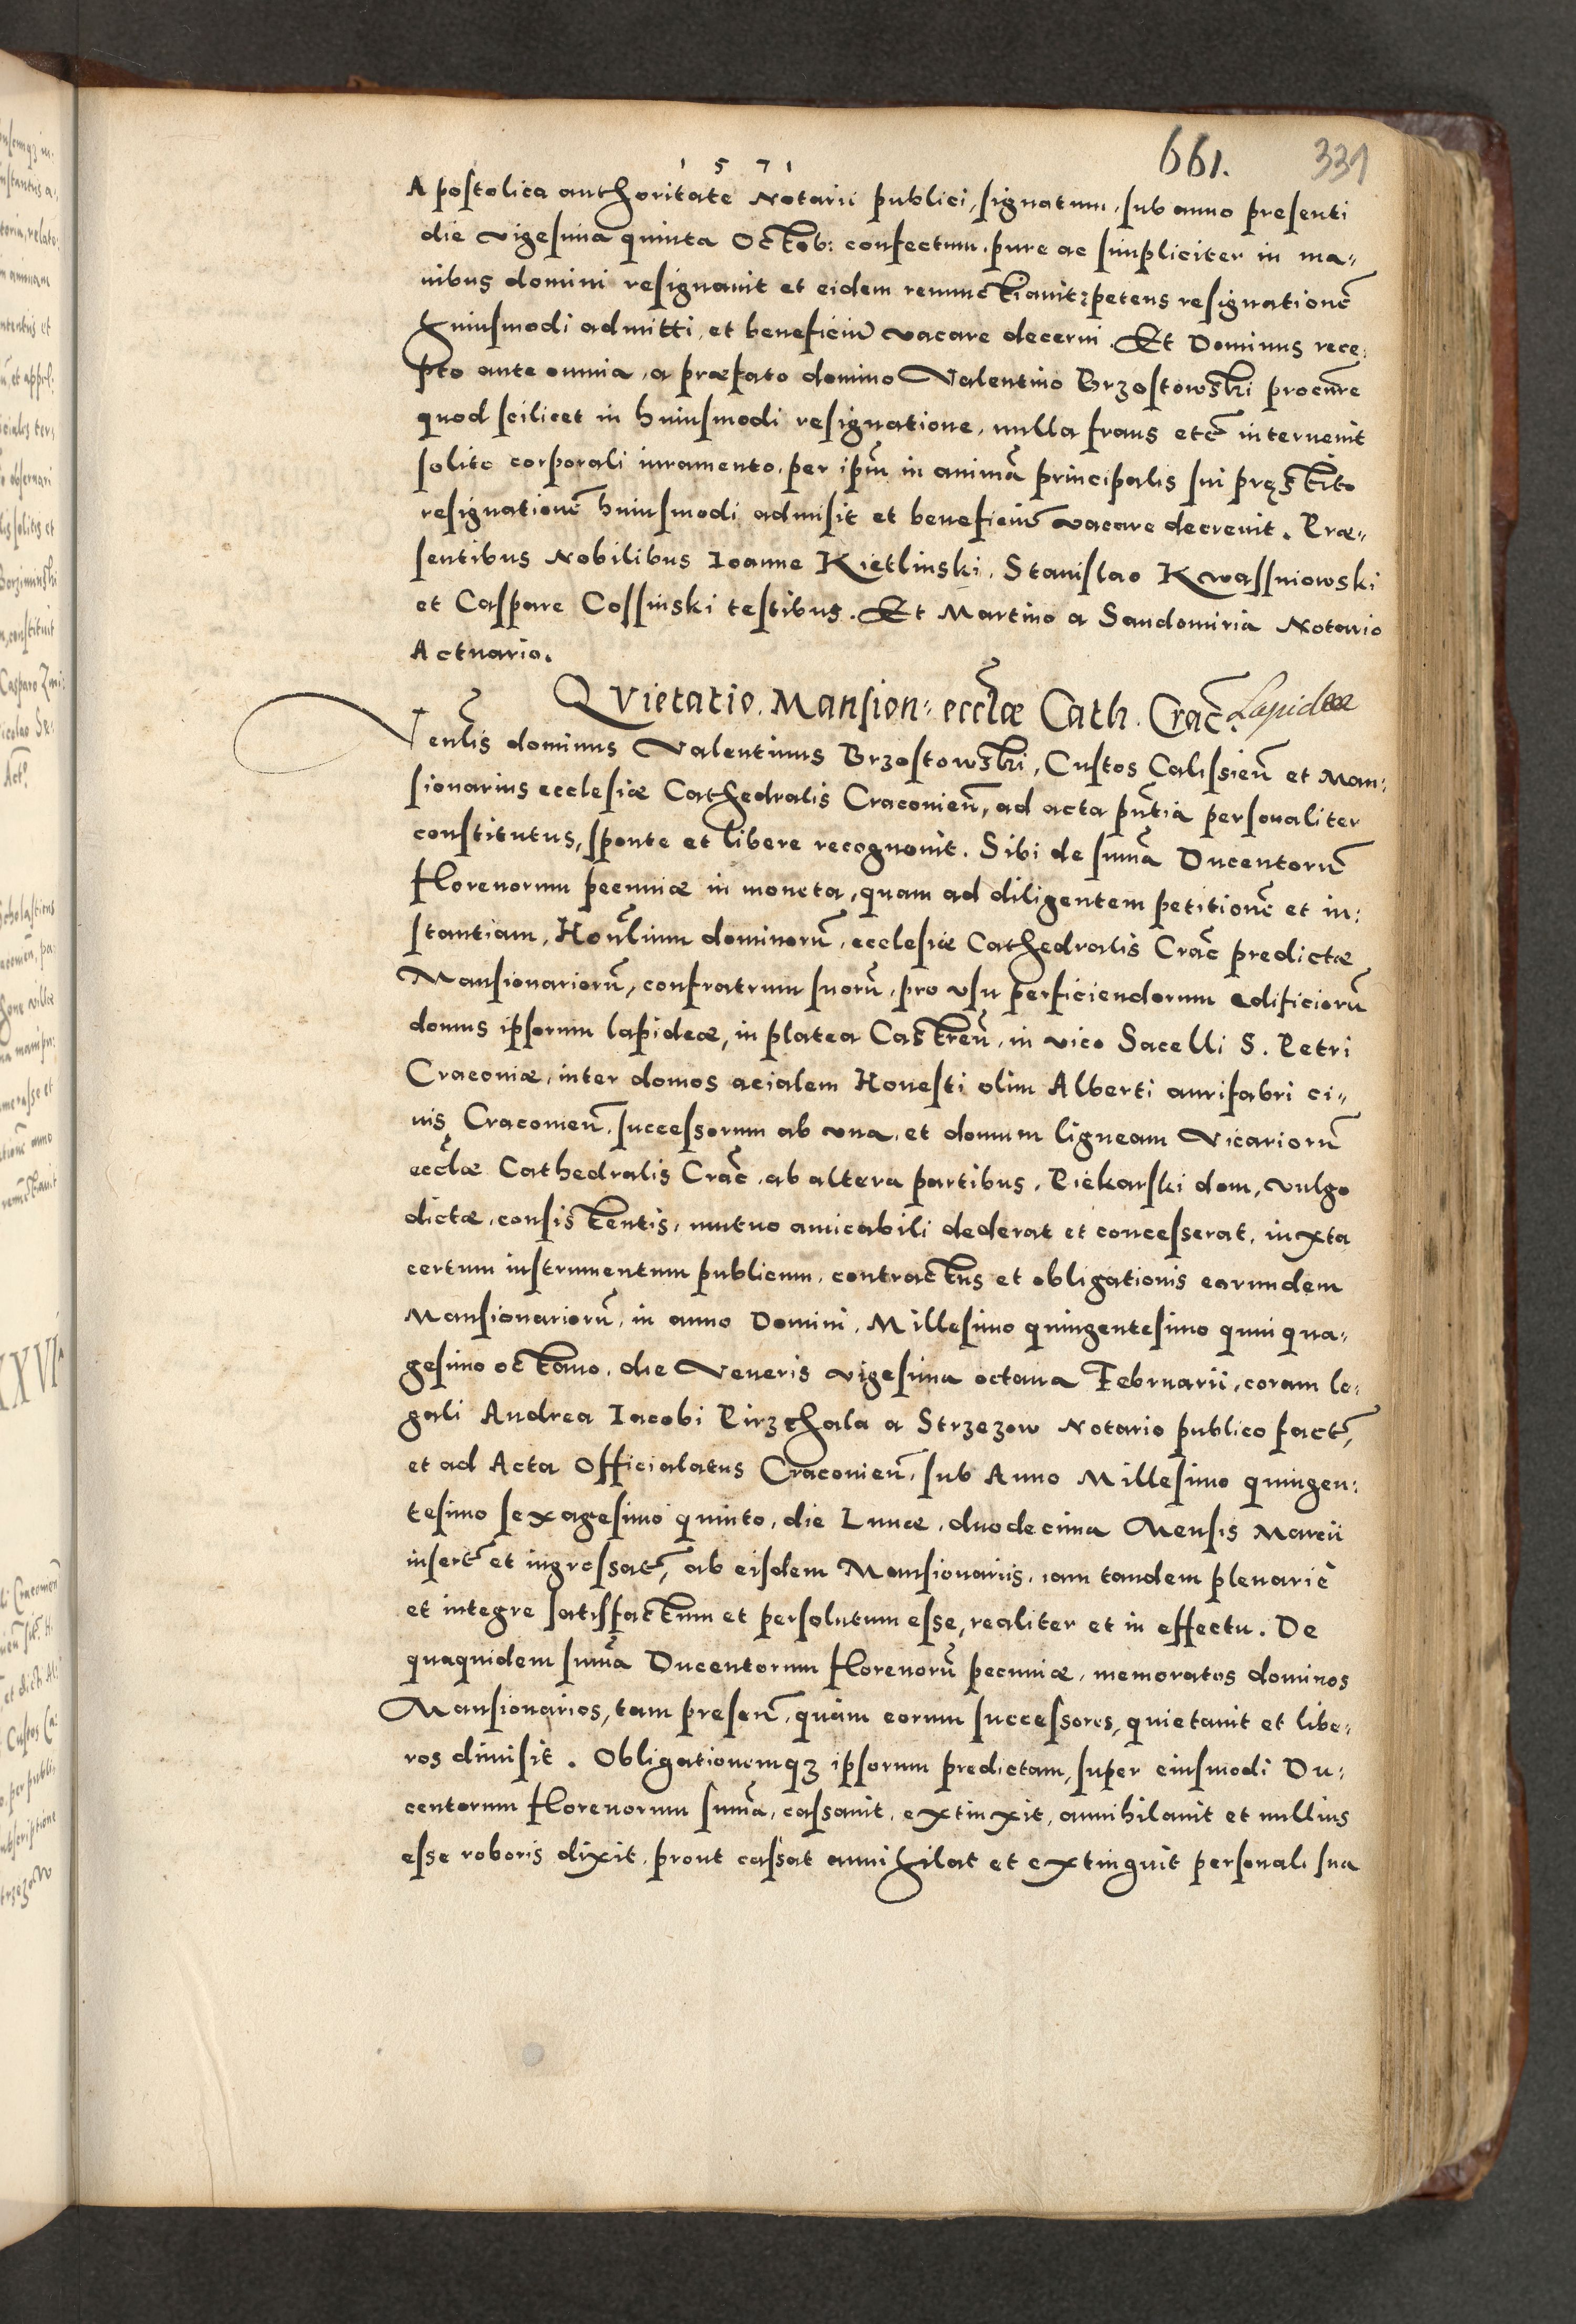 1571
661.
331
Apostolica authoritate Notarii publici, signatum, sub anno presenti
die vigesima quinta Octob: confectum, pure ac simpliciter in ma-
nibus domini resignauit et eidem renunctiauit, petens resignationē
huiusmodi admitti, et beneficiū vacare decerni. Et Dominus rece-
pto ante omnia, a præfato domino Valentino Brzostowski procure
quod scilicet in huiusmodi resignatione, nulla fraus etc̄ interuenit
solito corporali iuramento, per ipm̄ in animā principalis sui pręstito
resignationē huiusmodi admisit et beneficiū vacare decreuit. Præ-
sentibus Nobilibus Ioanne Kietlinski, Stanislao Kwassniowski
et Caspare Cossinski testibus. Et Martino a Sandomiria Notario
Actuario.
QVietatio. Mansion: eccl̄æ Cath. Crac̄. Lapideæ
Venl̄is dominus Valentinus Brzostowski, Custos Calissien̄ et Man-
sionarius ecclesiæ Cathedralis Cracouien̄, ad acta pn̄tia personaliter
constitutus, sponte et libere recognouit. Sibi de sum̄a Ducentorū
florenorum pecuniæ in moneta, quam ad diligentem petitionē et in-
stantiam, Honl̄ium dominorū, ecclesiæ Cathedralis Crac̄ predictæ
Mansionariorū, confratrum suorū, pro vsu perficiendorum edificiorū
domus ipsorum lapideæ, in platea Castren̄, in vico Sacelli S. Petri
Cracouiæ, inter domos acialem Honesti olim Alberti aurifabri ci-
uis Cracouien̄, successorum ab vna, et domum ligneam Vicariorū
eccl̄æ Cathedralis Crac̄, ab altera partibus, Piekarski dom, vulgo
dictæ, consistentis, mutuo amicabili dederat et concesserat, iuxta
certum instrumentum publicum, contractus et obligationis earundem
Mansionariorū, in anno Domini, Millesimo quingentesimo quinqua-
gesimo octauo, die Veneris vigesima octaua Februarii, coram le-
gali Andrea Iacobi Pirzchala a Strzezow Notario publico fact̄,
et ad Acta Officialatus Cracouien̄, sub Anno Millesimo quingen-
tesimo sexagesimo quinto, die Lunæ, duodecima Mensis Marcii
insert̄ et ingrossat̄, ab eisdem Mansionariis, iam tandem plenariè
et integre satisfactum et persolutum esse, realiter et in effectu. De
quaquidem sum̄a Ducentorum florenorū pecuniæ, memoratos dominos
Mansionarios, tam presen̄, quàm eorum successores, quietauit et libe-
ros dimisit. Obligationemq3 ipsorum predictam, super eiusmodi Du-
centorum florenorum sum̄a, cassauit, extinxit, annihilauit et nullius
esse roboris dixit, prout cassat annihilat et extinguit personali sua